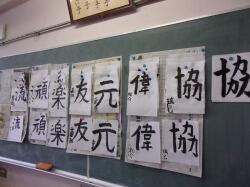 協
協
偉
元
友
楽
頑
流
協
偉
元
友
楽
頑
流